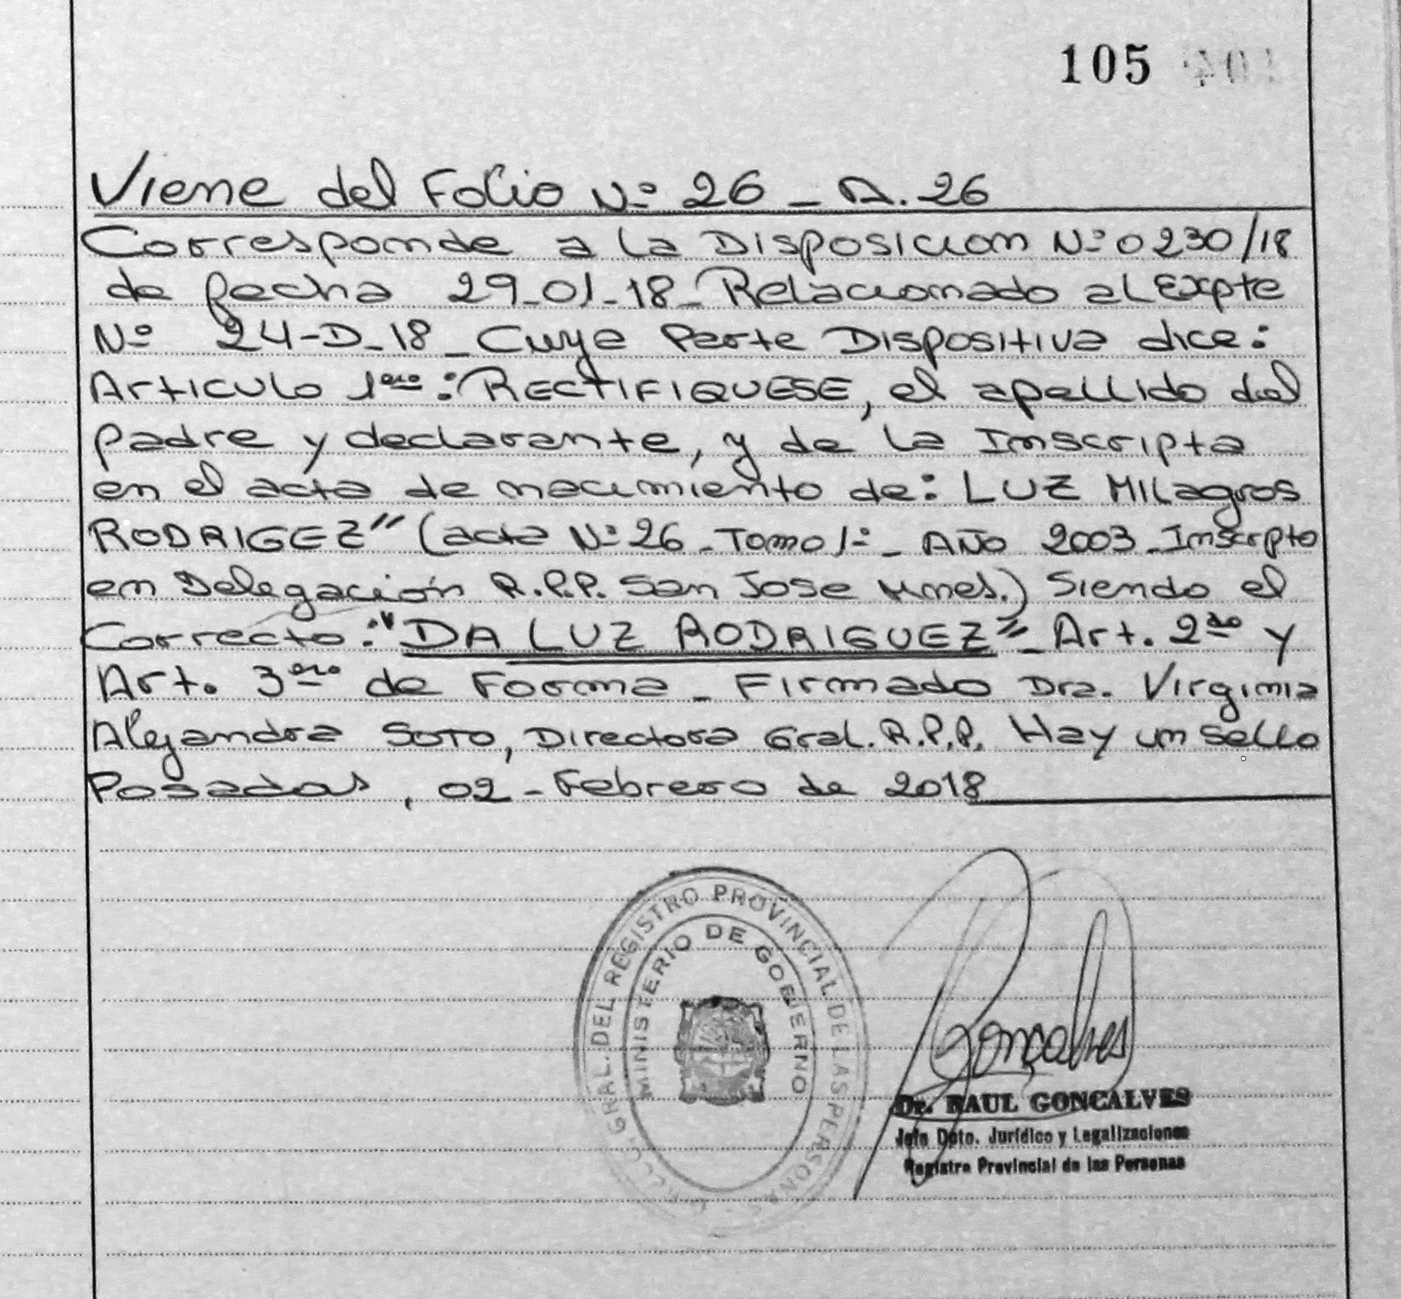 105
Viene del Folio Nº 26 _ A. 26
Corresponde a la Disposicion Nº 0230/18
de fecha 29-01-18_Relacionado al Expte
Nº 24-D-18_Cuya Parte Dispositiva dice:
Articulo 1ero: RECTIFIQUESE, el apellido del
padre y declarante, y de la Inscripta
en el acta de nacimiento de: LUZ Milagros
RODRIGEZ" (acta Nº 26_Tomo 1º_ Año 2003_Inscripto
en Delegación R.P.P. San Jose Mnes.) Siendo el
Correcto: "DA LUZ RODRIGUEZ"_ Art. 2do y
Art. 3ero de Forma_ Firmado Dra. Virginia
Alejandra Soto, Directora Gral. R.P.P. Hay un Sello
Posadas, 02-Febrero de 2018
GRAL. DEL REGISTRO PROVINCIAL DE LAS PERSONAS
MINISTERIO DE GOBIERNO
Goncalves
Dr. RAUL GONCALVES
Jefe Dpto. Jurídico y Legalizaciones
Registro Provincial de las Personas